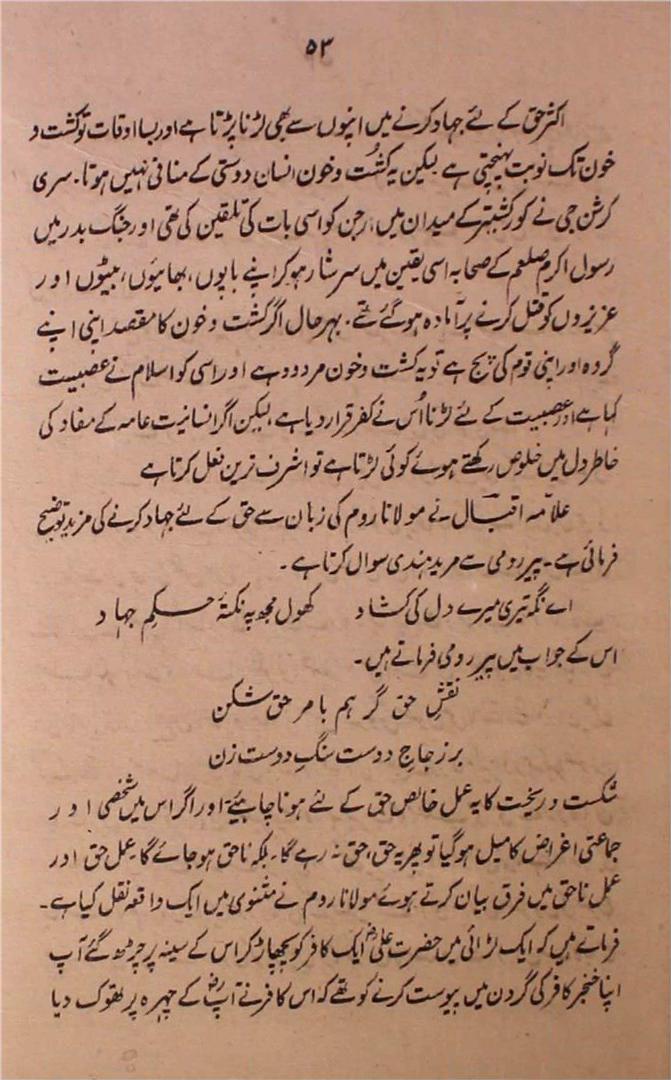 ۵۳
اکثر حق کے لئے جہاد کرنے میں اپنوں سے بھی لڑنا پڑتا ہے اور بسا اوقات تو کشت و
خون تک نوبت پہنچتی ہے لیکن یہ کشت و خون انسان دوستی کے منافی نہیں ہوتا۔ سری
کرشن جی نے کورکشیتر کے میدان میں ارجن کو اسی بات کی تلقین کی تھی اور جنگ بدر میں
رسول اکرم صلعم کے صحابہ اسی یقین میں سرشار ہو کر اپنے باپوں، بھائیوں، بیٹوں اور
عزیزوں کو قتل کرنے پر آمادہ ہو گئے تھے۔ بہر حال اگر کشت و خون کا مقصد اپنی اپنے
گروہ اور اپنی قوم کی پچ ہے تو یہ کشت و خون مردود ہے اور اسی کو اسلام نے عصبیت
کہا ہے اور عصبیت کے لئے لڑنا اُس نے کفر قرار دیا ہے، لیکن اگر انسانیت عامہ کے مفاد کی
خاطر دل میں خلوص رکھتے ہوئے کوئی لڑتا ہے تو اشرف ترین فعل کرتا ہے
علامہ اقبال نے مولانا روم کی زبان سے حق کے لئے جہاد کرنے کی مزید توضیح
فرمائی ہے۔ پیر رومی سے مرید ہندی سوال کرتا ہے۔
اے نگہ تیری میرے دل کی کشاد کھول مجھ پہ نکتۂ حکمِ جہاد
اس کے جواب میں پیر رومی فرماتے ہیں۔
نقشِ حق گر ہم بامر حق شکن
بر زجاجِ دوست سنگِ دوست زن
شکست و ریخت کا یہ عمل خالص حق کے لئے ہونا چاہیئے اور اگر اس میں شخصی اور
جماعتی اغراض کا میل ہو گیا تو پھر یہ حق، حق نہ رہے گا۔ بلکہ ناحق ہو جائے گا۔ عمل حق اور
عمل ناحق میں فرق بیان کرتے ہوئے مولانا روم نے مثنوی میں ایک واقعہ نقل کیا ہے۔
فرماتے ہیں کہ ایک لڑائی میں حضرت علیؓ ایک کافر کو پچھاڑ کر اس کے سینہ پر چڑھ گئے آپ
اپنا خنجر کافر کی گردن میں پیوست کرنے کو تھے کہ اس کافر نے آپؓ کے چہرہ پر تھوک دیا